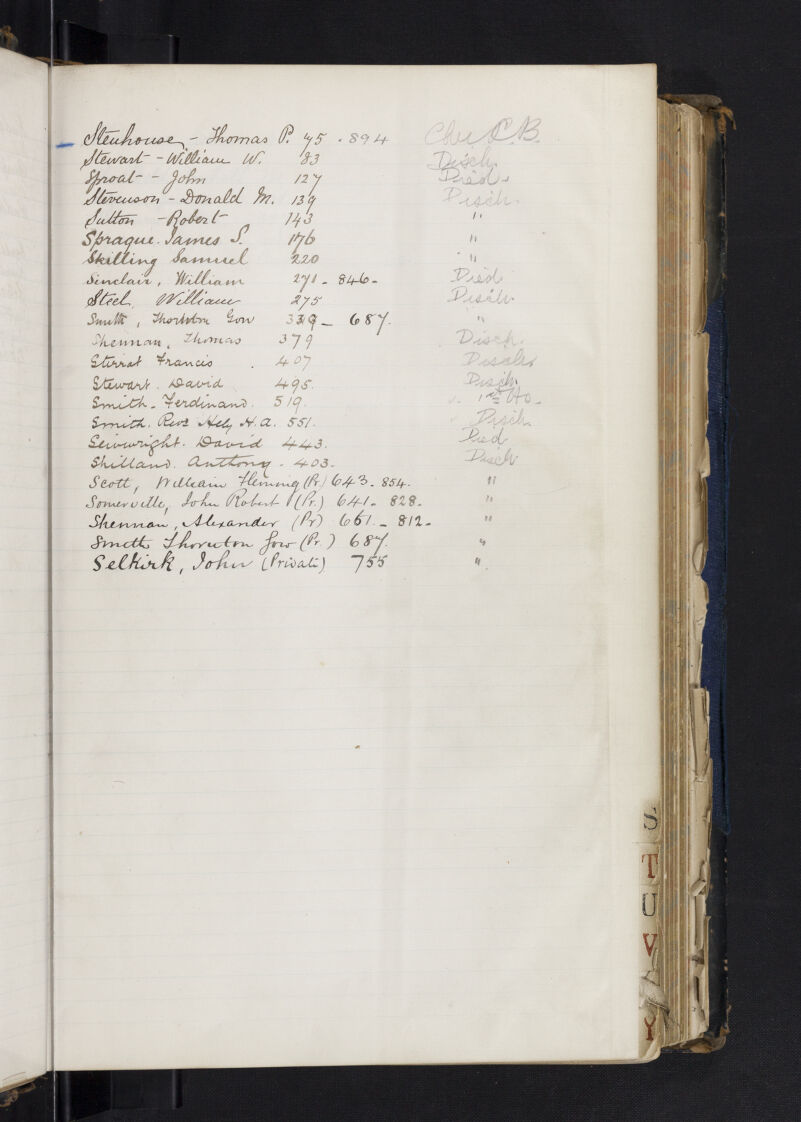 Stenhouse, - Thomas P. 75 - 894 C.B.
Stewart - William W. 83 Disch.
Sproat - John 127 Died.
Stevenson - Donald M. 139 Disch.
Sutton - Robert 143 "
Sprague. James S. 176 "
Skilling Samuel 220 "
Sinclair, William 271 - 846 - Died
Steel, William 275 Disch.
Smith, Thornton Gow 339 - 687. "
Shennan, Thomas 379 Disch.
Stirrat Francis . 407 Disch.
Stewart. David 495. Disch.
Smith - Ferdinand. 519.
Smith. Revd Hely H.A. 551. Disch.
Seivwright. David 443. Died
Shilland. Anthony. 403. Disch
Scott, William Fleming (Pr.) 643. 854. "
Somerville, John Robert (Pr.) 641 - 828. "
Shennan, Alexander (Pr) 661 - 812 - "
Smith Thornton Gow (Pr.) 687. "
Selkirk, John (Private) 755 "
S
T
U
V
Y